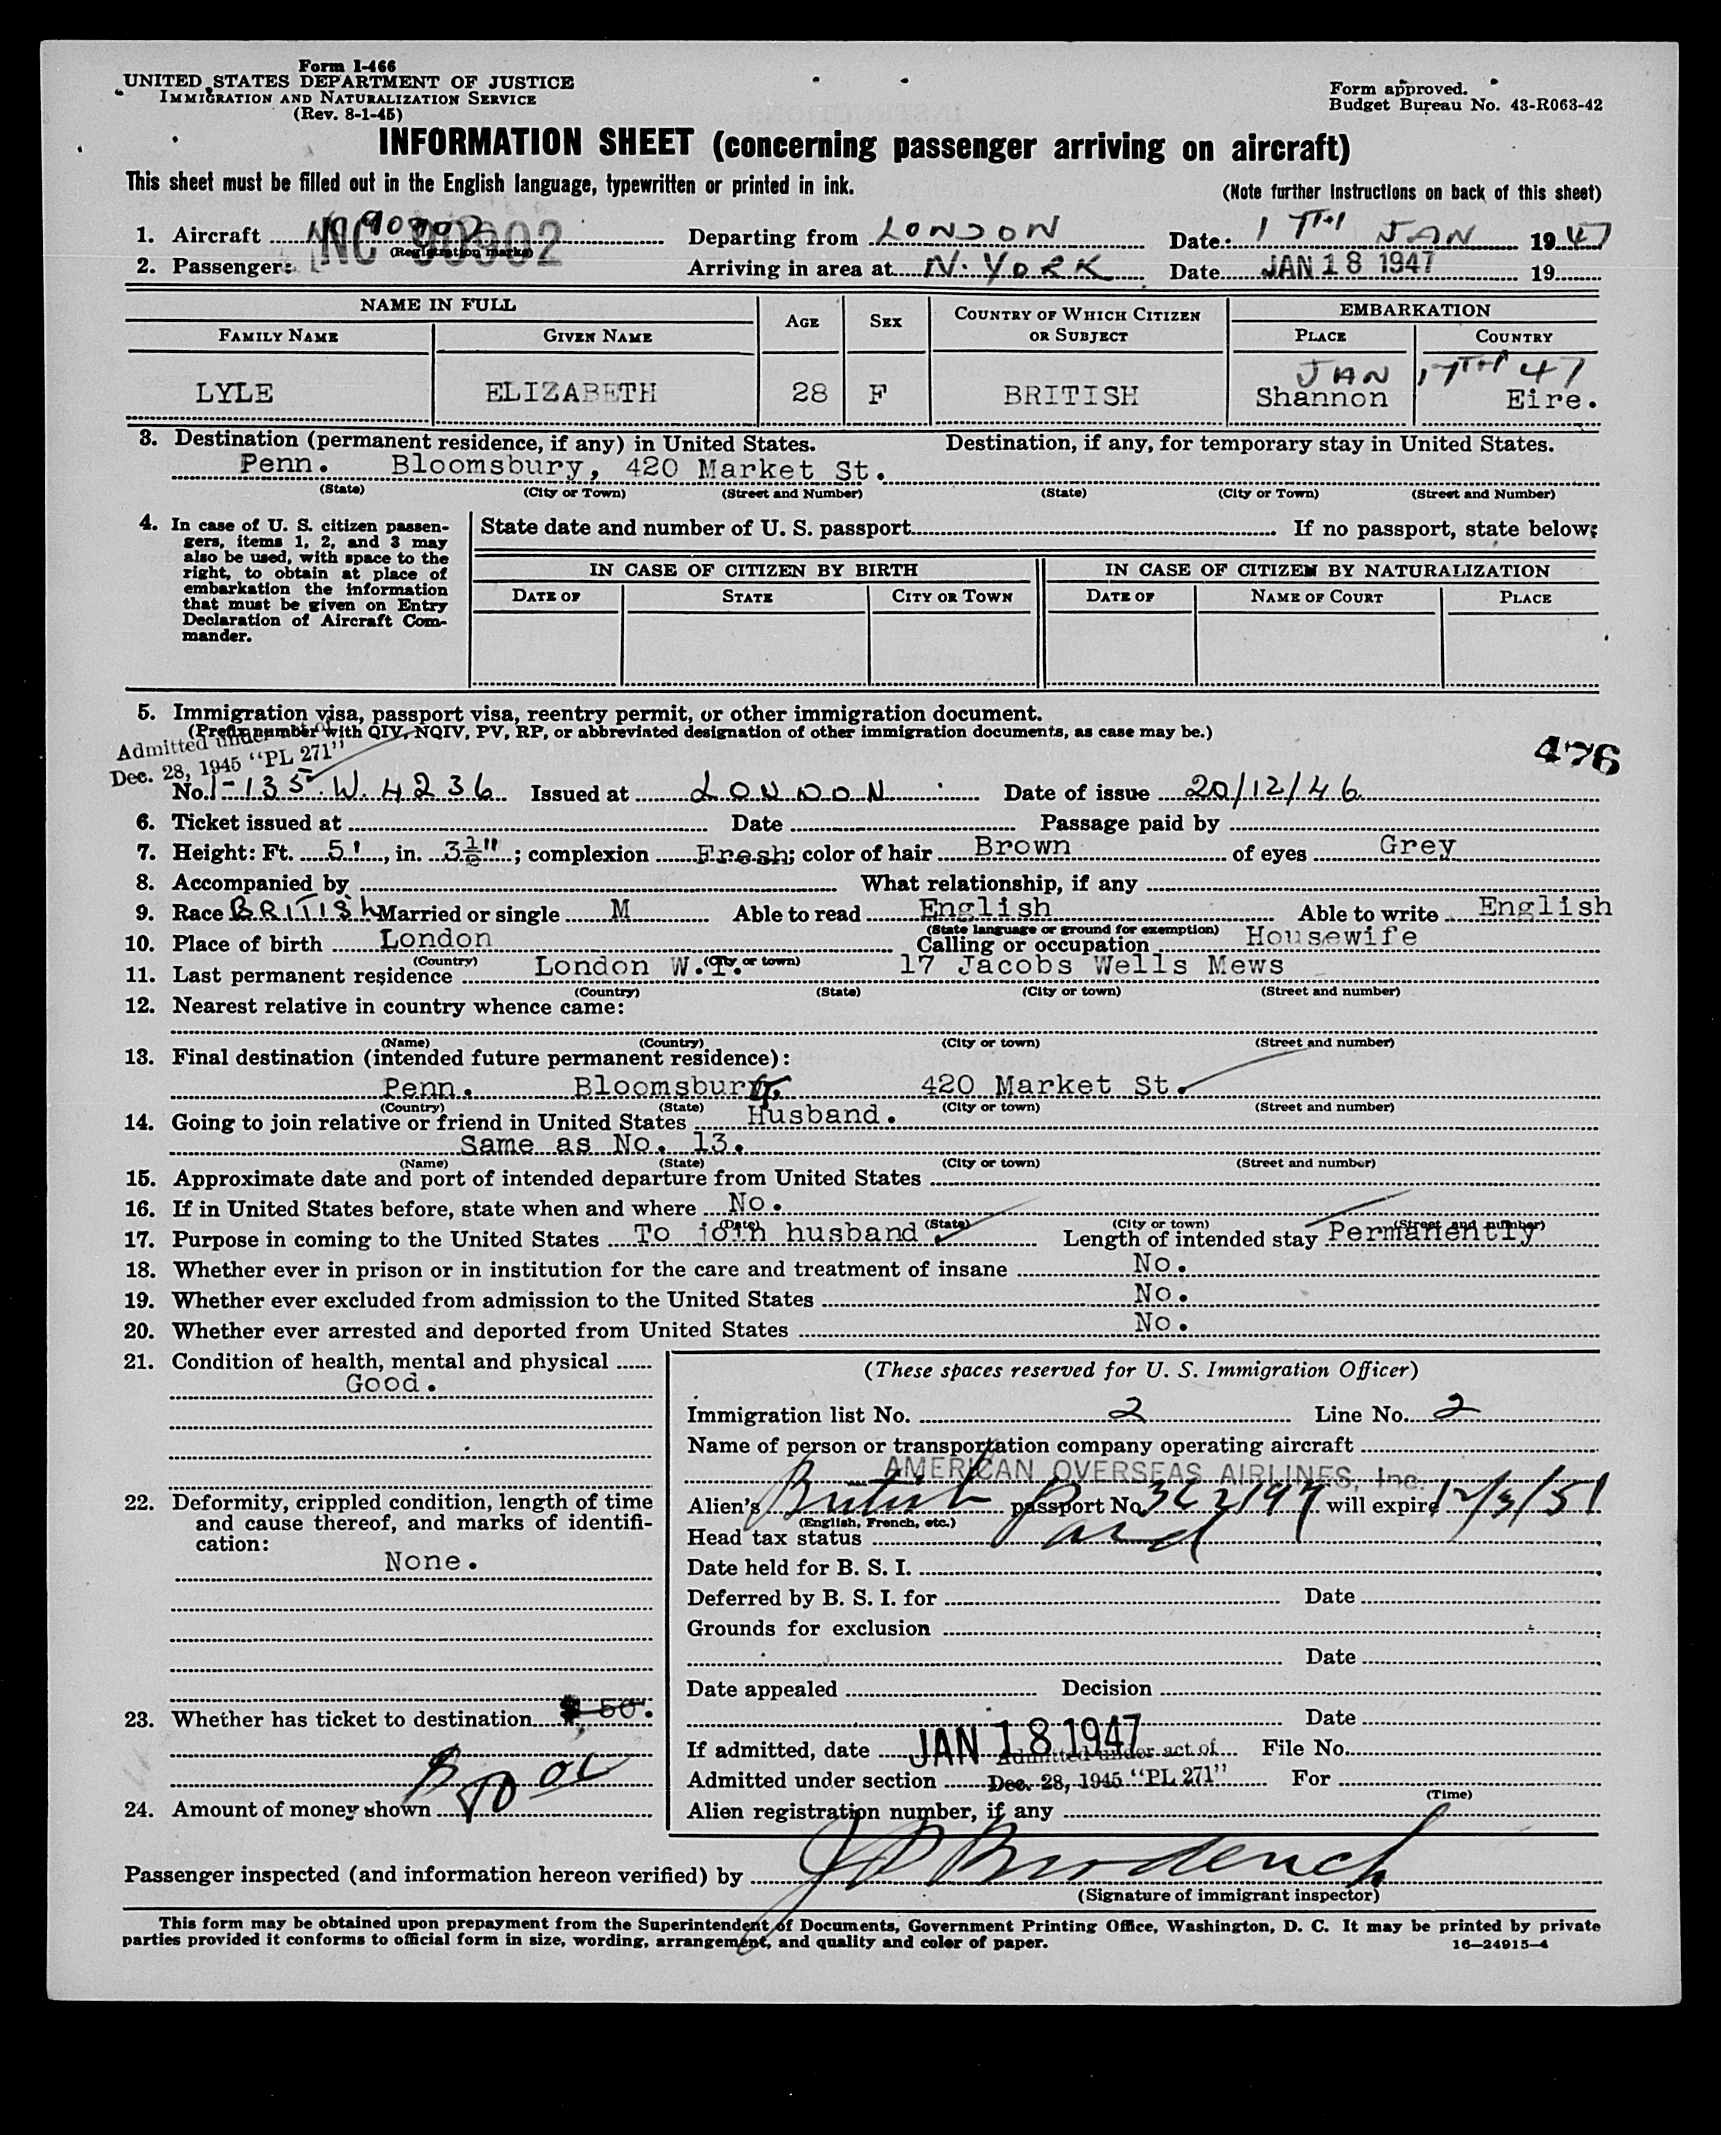 Form I-466
UNITED STATES DEPARTMENT OF JUSTICE
IMMIGRATION AND NATURALIZATION SERVICE
(Rev. 8-1-45)
Form approved.
Budget Bureau No. 43-R063-42
INFORMATION SHEET (concerning passenger arriving on aircraft)
This sheet must be filled out in the English language, typewritten or printed in ink.
(Note further instructions on back of this sheet)
1. Aircraft NC 90902 Departing from LONDON Date: 17TH JAN 1947
(Registration marks)
2. Passenger: Arriving in area at N. YORK Date JAN 18 1947 19
NAME IN FULL AGE SEX COUNTRY OF WHICH CITIZEN OR SUBJECT EMBARKATION
FAMILY NAME GIVEN NAME PLACE COUNTRY
JAN 17TH 47
LYLE ELIZABETH 28 F BRITISH Shannon Eire.
3. Destination (permanent residence, if any) in United States. Destination, if any, for temporary stay in United States.
Penn. Bloomsbury, 420 Market St.
(State) (City or Town) (Street and Number) (State) (City or Town) (Street and Number)
4. In case of U. S. citizen passengers, items 1, 2, and 3 may also be used, with space to the right, to obtain at place of embarkation the information that must be given on Entry Declaration of Aircraft Commander.
State date and number of U. S. passport If no passport, state below:
IN CASE OF CITIZEN BY BIRTH IN CASE OF CITIZEN BY NATURALIZATION
DATE OF STATE CITY OR TOWN DATE OF NAME OF COURT PLACE
5. Immigration visa, passport visa, reentry permit, or other immigration document.
(Prefix number with QIV, NQIV, PV, RP, or abbreviated designation of other immigration documents, as case may be.)
Admitted under act of
Dec. 28, 1945 "PL 271"
476
No. 1-135.W.4236 Issued at LONDON Date of issue 20/12/46
6. Ticket issued at Date Passage paid by
7. Height: Ft. 5', in. 3½"; complexion Fresh; color of hair Brown of eyes Grey
8. Accompanied by What relationship, if any
9. Race BRITISH Married or single M Able to read English Able to write English
(State language or ground for exemption)
10. Place of birth London Calling or occupation Housewife
(Country) (City or town)
11. Last permanent residence London W.I. 17 Jacobs Wells Mews
(Country) (State) (City or town) (Street and number)
12. Nearest relative in country whence came:
(Name) (Country) (City or town) (Street and number)
13. Final destination (intended future permanent residence):
Penn. Bloomsburg. 420 Market St.
(Country) (State) (City or town) (Street and number)
14. Going to join relative or friend in United States Husband.
Same as No. 13.
(Name) (State) (City or town) (Street and number)
15. Approximate date and port of intended departure from United States
16. If in United States before, state when and where No.
(Date) (State) (City or town) (Street and number)
17. Purpose in coming to the United States To join husband Length of intended stay Permanently
18. Whether ever in prison or in institution for the care and treatment of insane No.
19. Whether ever excluded from admission to the United States No.
20. Whether ever arrested and deported from United States No.
21. Condition of health, mental and physical
Good.
22. Deformity, crippled condition, length of time and cause thereof, and marks of identification:
None.
23. Whether has ticket to destination $ 50.
24. Amount of money shown
(These spaces reserved for U. S. Immigration Officer)
Immigration list No. 2 Line No. 2
Name of person or transportation company operating aircraft
AMERICAN OVERSEAS AIRLINES, Inc.
Alien's British passport No. will expire 12/3/51
(English, French, etc.)
Head tax status Paid
Date held for B. S. I.
Deferred by B. S. I. for Date
Grounds for exclusion
Date
Date appealed Decision
Date
If admitted, date JAN 18 1947 File No.
Admitted under act of
Admitted under section Dec. 28, 1945 "PL 271" For
(Time)
Alien registration number, if any
Passenger inspected (and information hereon verified) by
(Signature of immigrant inspector)
This form may be obtained upon prepayment from the Superintendent of Documents, Government Printing Office, Washington, D. C. It may be printed by private
parties provided it conforms to official form in size, wording, arrangement, and quality and color of paper.
16—24915-4